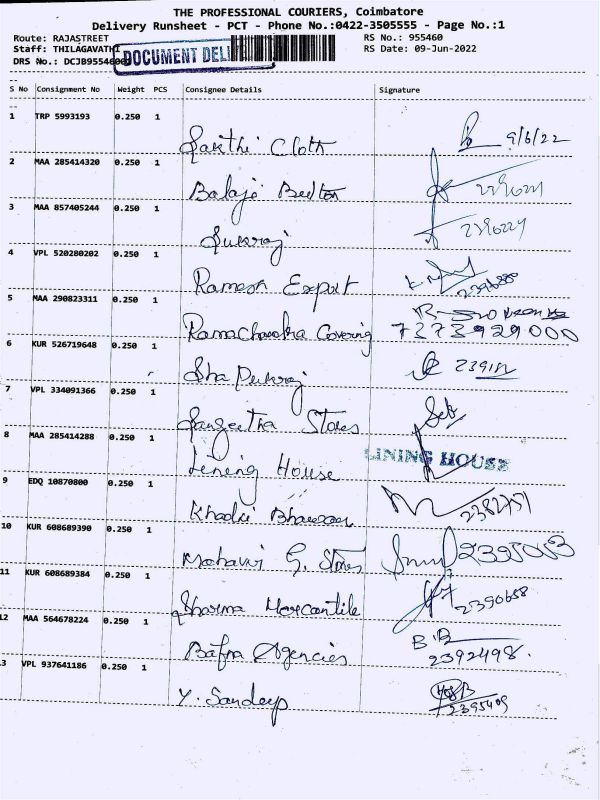 THE PROFESSIONAL COURIERS, Coimbatore
Delivery Runsheet - PCT - Phone No.:0422-3505555 - Page No.:1
Route: RAJASTREET RS No.: 955460
Staff: THILAGAVATHI RS Date: 09-Jun-2022
DRS No.: DCJB955460
DOCUMENT DEL
S No Consignment No Weight PCS Consignee Details Signature
1 TRP 5993193 0.250 1 Sakthi Cloth 9/6/22
2 MAA 285414320 0.250 1 Balaji
3 MAA 857405244 0.250 1 Sukraj
4 VPL 520280202 0.250 1 Ramesh Export 2396880
5 MAA 290823311 0.250 1 Ramachandra Covering 7373929000
6 KUR 526719648 0.250 1 Sha Pukraj
7 VPL 334091366 0.250 1 Sangeetha Stores
8 MAA 285414288 0.250 1 Lining House LINING HOUSE
9 EDQ 10870800 0.250 1 Khadi Bhawan
10 KUR 608689390 0.250 1 G. Stores
11 KUR 608689384 0.250 1 Sharma Mercantile 2390688
12 MAA 564678224 0.250 1 Bafna Agencies B.B 2392498.
13 VPL 937641186 0.250 1 Y. Sandeep 2395409